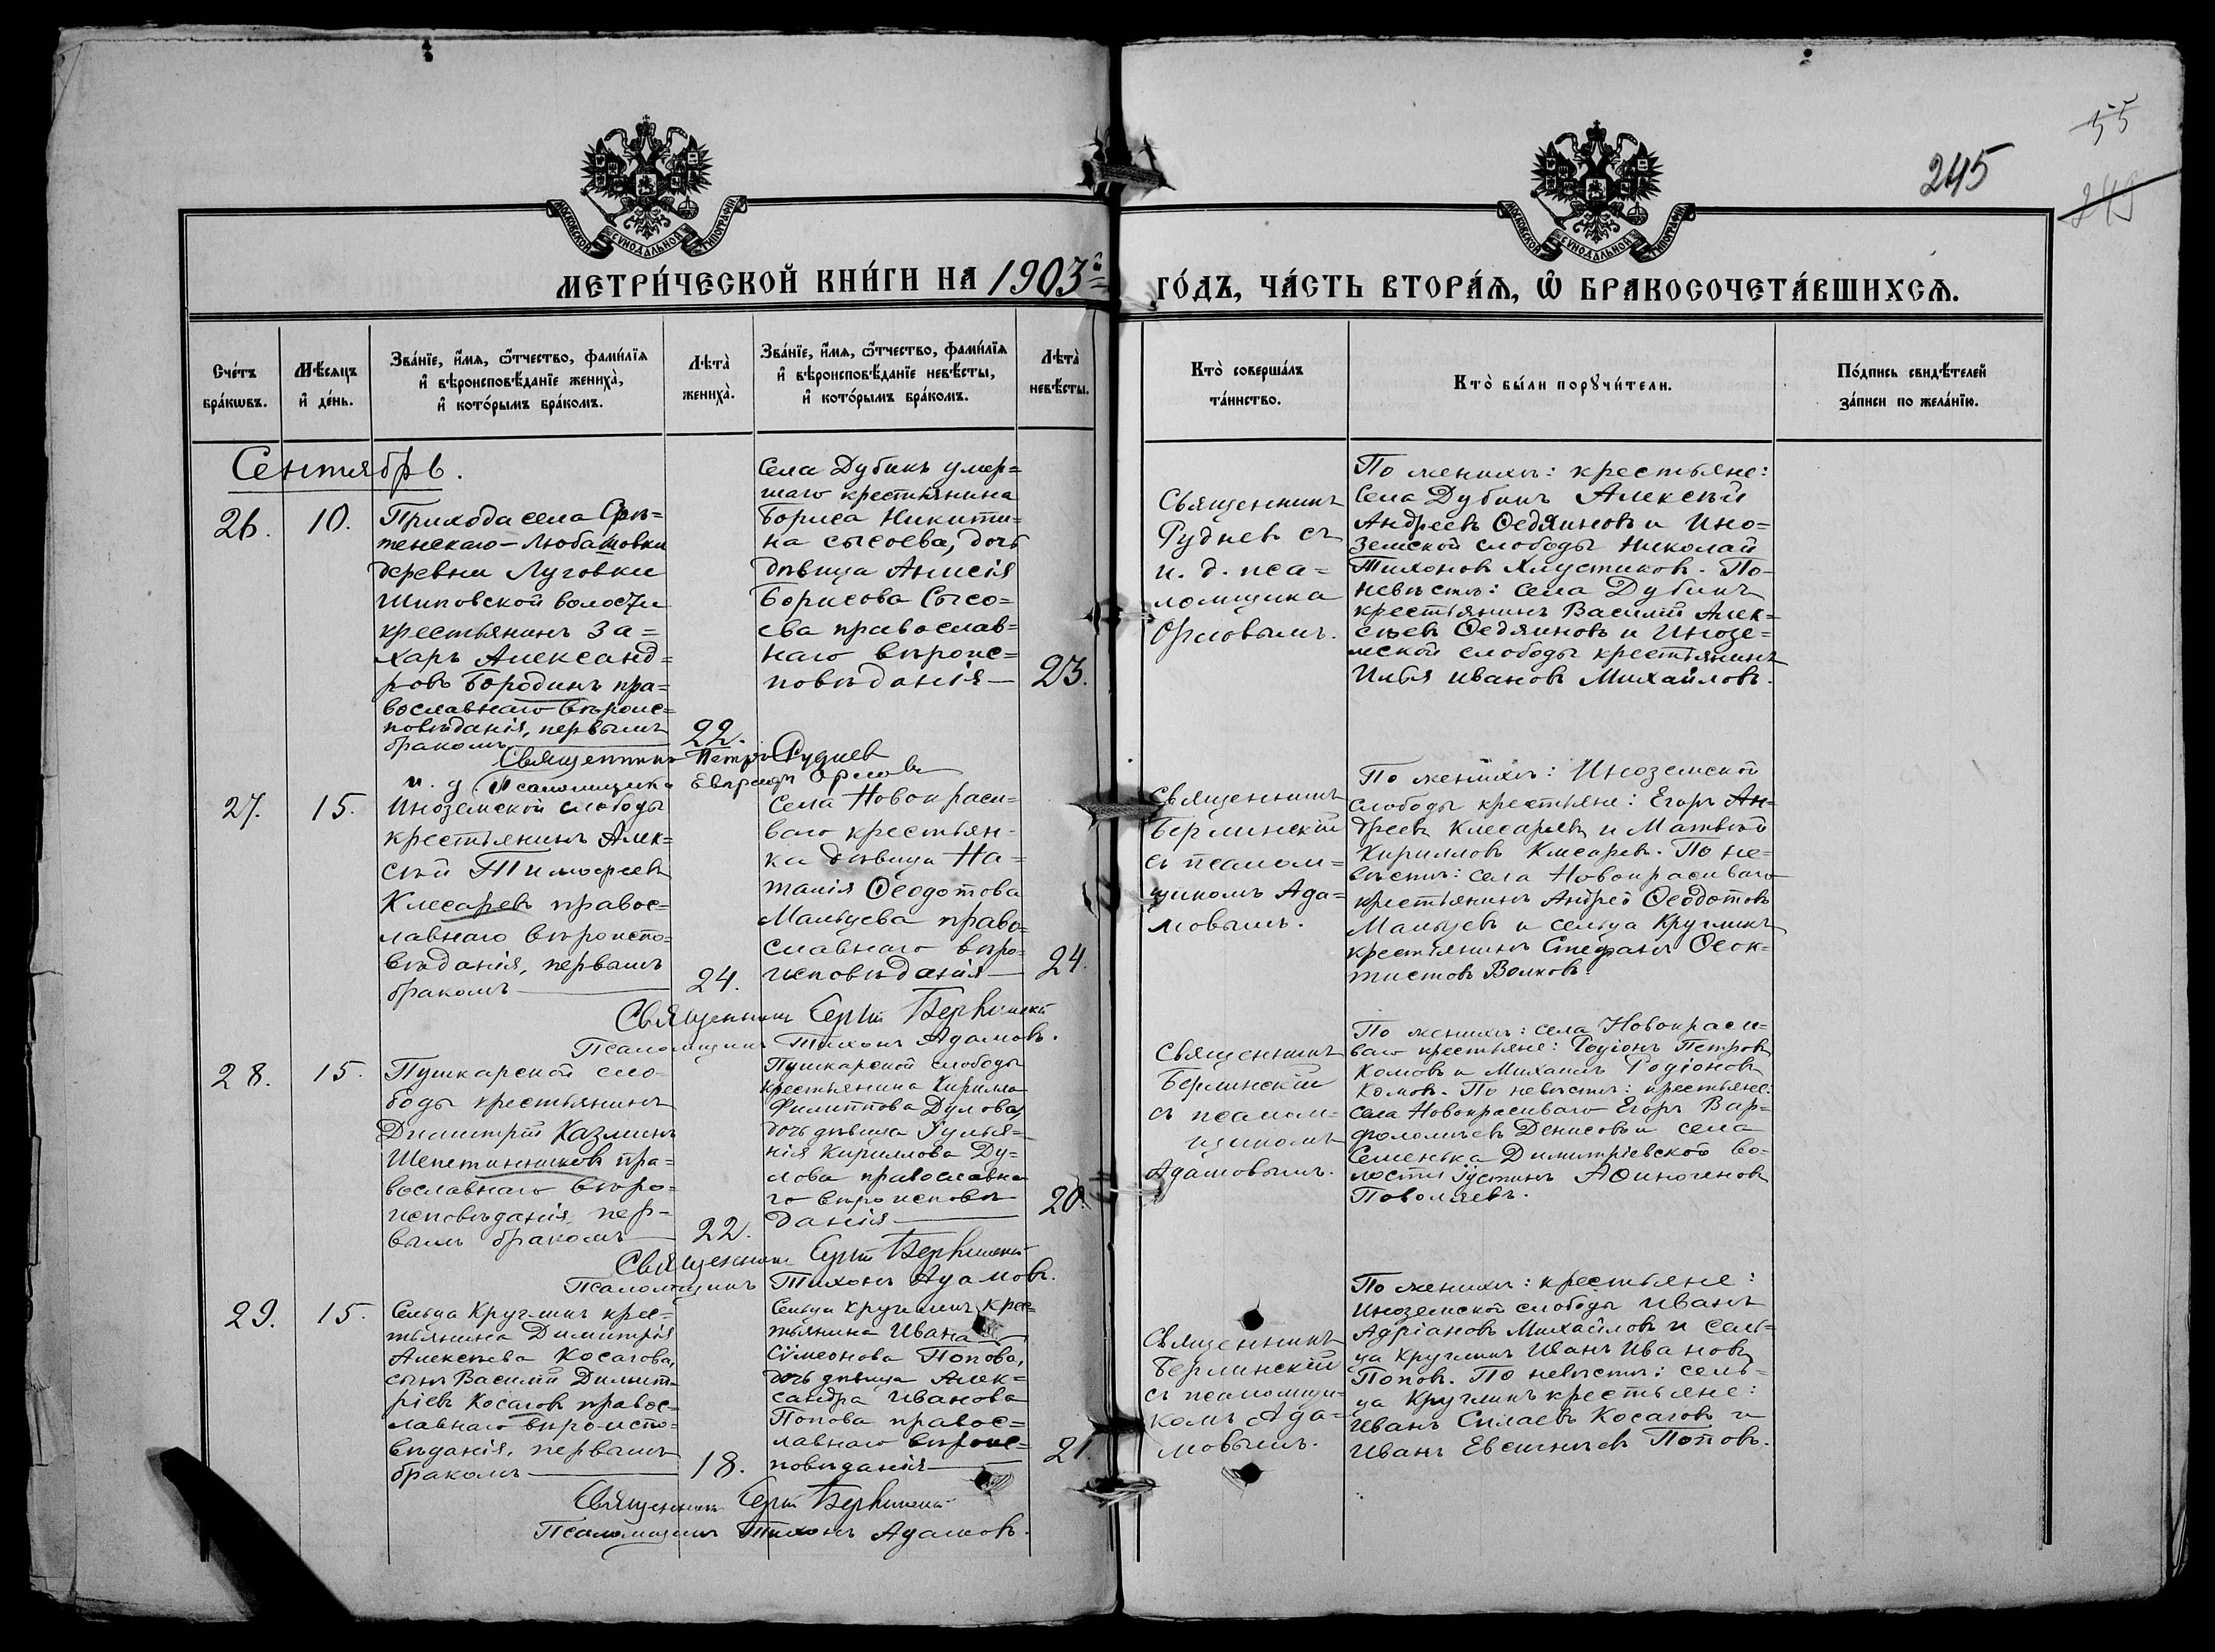 55
245
243
МОСКОВСКОЙ СѴНОДАЛЬНОЙ ТИПОГРАФІИ
МОСКОВСКОЙ СѴНОДАЛЬНОЙ ТИПОГРАФІИ
МЕТРИ́ЧЕСКОЙ КНИ́ГИ НА 1903й
ГО́ДЪ, ЧА́СТЬ ВТОРА́Ѧ, Ѽ БРАКОСОЧЕТА́ВШИХСѦ.
Сче́тъ
бра́кѡвъ.
Мѣ́сяцъ
и҆ де́нь.
Зва́нїе, и҆́мѧ, ѻ҆́тчество, фами́лїѧ
и҆ вѣроисповѣ́данїе жениха̀,
и҆ кото́рымъ бра́комъ.
Лѣта̀
жениха̀.
Зва́нїе, и҆́мѧ, ѻ҆́тчество, фами́лїѧ
и҆ вѣроисповѣ́данїе невѣ́сты,
и҆ кото́рымъ бра́комъ.
Лѣта̀
невѣ́сты.
Кто̀ соверша́лъ
та́инство.
Кто̀ бы́ли порꙋчи́тели.
По́дпись свидѣ́телей
за́писи по жела́нїю.
Сентябрь.
26.
10.
Прихода села Срѣ=
тенскаго-Любатовки
деревни Луговки
Шиповской волости
крестьянинъ За=
харъ Александ=
ровъ Бородинъ пра=
вославнаго вѣроис=
повѣданія, первымъ
бракомъ
22.
Села Дубикъ умер=
шаго крестьянина
Бориса Никити=
на Сысоева, дочь
дѣвица Анисія
Борисова Сысо=
ева православ=
наго вѣроис=
повѣданія
23.
Священникъ
Рудневъ съ
и. д. пса=
ломщика
Орловымъ.
По женихѣ: крестьяне:
Села Дубикъ Алексѣй
Андреевъ Ѳедяиновъ и Ино=
земской слободы Николай
Тихоновъ Хлустиковъ. По
невѣстѣ: села Дубикъ
крестьянинъ Василій Алек=
сѣевъ Ѳедяиновъ и Инозе=
мской слободы крестьянинъ
Илья Ивановъ Михайловъ.
Священникъ Петръ Рудневъ
и. д. Псаломщика Орловъ
27.
15.
Иноземской слободы
крестьянинъ Алек=
сѣй Тимофеевъ
Клесаревъ правос=
лавнаго вѣроиспо=
вѣданія, первымъ
бракомъ
24.
Села Новокраси=
ваго крестьян=
ка дѣвица На=
талія Ѳеодотова
Мальцева право=
славнаго вѣро=
исповѣданія
24.
Священникъ
Берлинскій
съ псалом=
щикомъ Ада=
мовымъ.
По женихѣ: Иноземской
слободы крестьяне: Егоръ Ан=
дреевъ Клесаревъ и Матвѣй
Кирилловъ Клесаревъ. По не=
вѣстѣ: села Новокрасиваго
крестьянинъ Андрей Ѳеодотовъ
Мальцевъ и сельца Кругликъ
крестьянинъ Стефанъ Ѳеок=
тистовъ Волковъ.
Священникъ Сергій Берлинскій
Псаломщикъ Тихонъ Адамовъ.
28.
15.
Пушкарской сло=
боды крестьянинъ
Димитрій Казминъ
Шепетинниковъ пра=
вославнаго вѣро=
исповѣданія пер=
вымъ бракомъ
22.
Пушкарской слободы
крестьянина Кирилла
Филиппова Дулова,
дочь дѣвица Іуліа=
нія Кириллова Ду=
лова православна
го вѣроисповѣ
данія
20.
Священникъ
Берлинскій
съ псалом=
щикомъ
Адамовымъ.
По женихѣ: села Новокраси=
ваго крестьяне: Родіонъ Петровъ
Комовъ и Михаилъ Родіоновъ
Комовъ. По невѣстѣ: крестьяне:
села Новокрасиваго Егоръ Вар=
фоломѣевъ Денисовъ и села
Семенька Димитріевской во=
лости Іустинъ Аѳиногеновъ
Поволяевъ.
Священникъ Сергій Берлинскій
Псаломщикъ Тихонъ Адамовъ.
29.
15.
Сельца Кругликъ крес=
тьянина Димитрія
Алексѣева Косагова,
сынъ Василій Димит=
ріевъ Косаговъ правос=
лавнаго вѣроиспо=
вѣданія, первымъ
бракомъ
18.
Сельца Кругликъ крес=
тьянина Ивана
Сѵмеонова Попова,
дочь дѣвица Алек=
сандра Иванова
Попова правос=
лавнаго вѣроис=
повѣданія
21.
Священникъ
Берлинскій
съ псаломщи=
комъ Ада=
мовымъ.
По женихѣ: крестьяне:
Иноземской слободы Иванъ
Адріановъ Михайловъ и сель=
ца Кругликъ Иванъ Ивановъ
Поповъ. По невѣстѣ: сель=
ца Кругликъ крестьяне:
Иванъ Силаевъ Косаговъ и
Иванъ Евсигнѣевъ Поповъ.
Священникъ Сергій Берлинскій
Псаломщикъ Тихонъ Адамовъ.